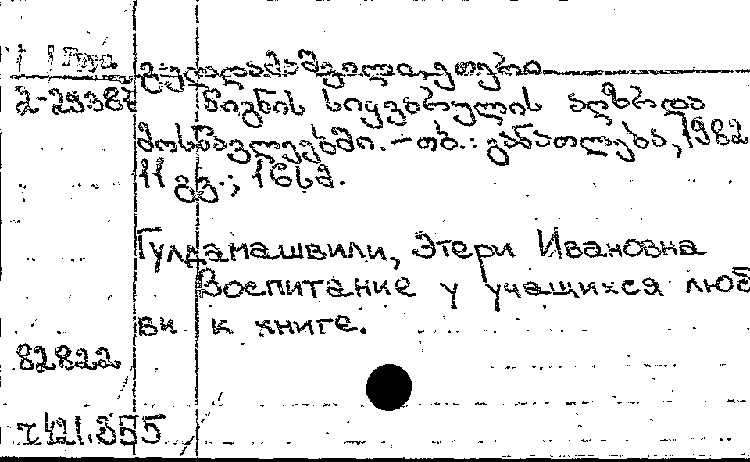 გულდამაშვილი, ეთერი
2-2538
წიგნის სიყვარულის აღზრდა
მოსწავლეებში. - თბ.: განათლება, 1982
11 გვ.; 16 სმ.
Гулдамашвили, Этери Ивановна
Воспитание у учащихся люб
ви к книге.
82822